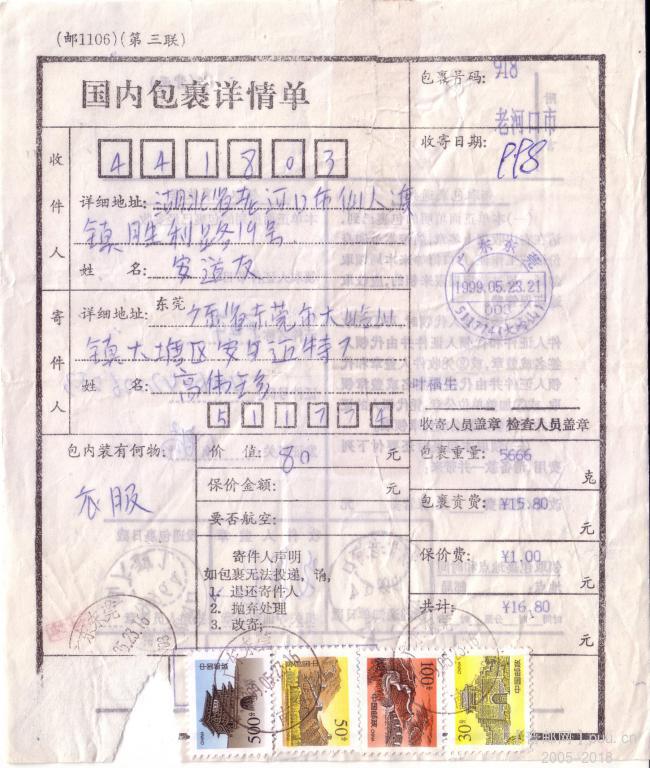 (邮1106)(第三联)
国内包裹详情单
包裹号码: 918
老河口市
收寄日期: 998
收件人
441803
详细地址: 湖北省老河口市仙人渡
镇胜利路19号
姓 名: 安道友
广东东莞
1999.05.23.21
003
511774(大岭山)
寄件人
详细地址: 东莞 广东省东莞市大岭山
镇大塘区安生迈特厂
姓 名: 高伟
叶福生
511774
收寄人员盖章 检查人员盖章
包内装有何物:
衣服
价 值: 80 元
保价金额: 元
要否航空:
寄件人声明
如包裹无法投递, 请,
1. 退还寄件人
2. 抛弃处理
3. 改寄:
包裹重量: 5666
克
包裹资费: ¥15.80
元
保价费: ¥1.00
元
共计: ¥16.80
元
中国邮政 CHINA 500分
中国邮政 CHINA 50分
中国邮政 CHINA 100分
中国邮政 CHINA 30分
2005-2018